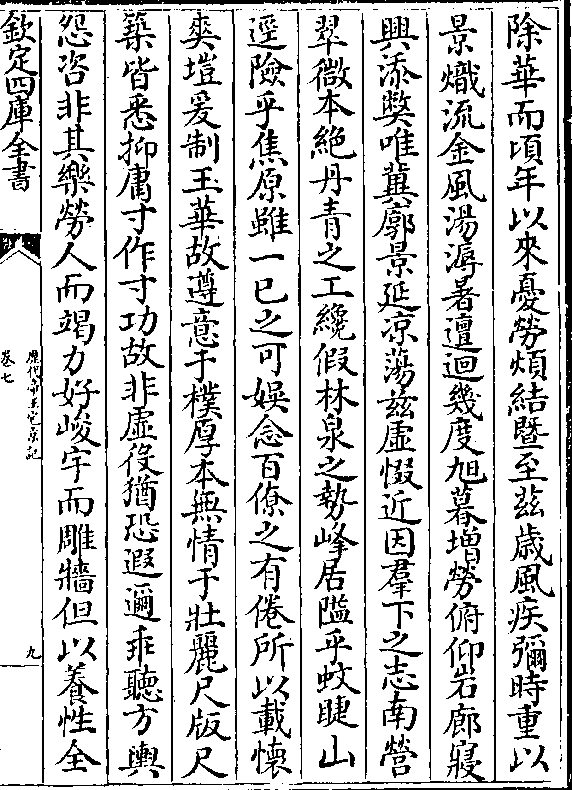 除華而頃年以來憂勞煩結暨至兹歳風疾彌時重以
景熾流金風湯溽暑邅迴幾度旭暮増勞俯仰岩廊寢
興添弊唯冀廓景延凉蕩兹虚惙近因羣下之志南營
翠微本絶丹青之工纔假林泉之勢峰居隘乎蚊睫山
逕險乎焦原雖一已之可娱念百僚之有倦所以載懐
爽塏爰制玉華故遵意于樸厚本無情于壯麗尺版尺
築皆悉抑庸寸作寸功故非虚役猶恐遐邇乖聽方輿
怨咨非其樂勞人而竭力好峻宇而雕牆但以養性全
欽定四庫全書
歷代帝王宅京記
卷七
九